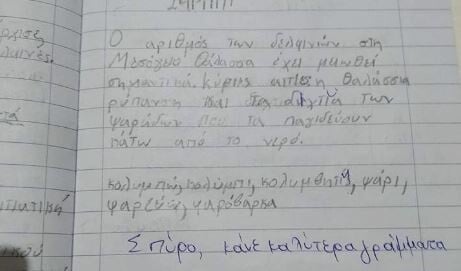 Ο αριθμός των δελφινιών στη
Μεσόγειο θάλασσα έχει μειωθεί
σημαντικά. Κύριες αιτίες η θαλάσσια
ρύπανση και τα δίχτυα των
ψαράδων που τα παγιδεύουν
κάτω από το νερό.
κολυμπώ, κολύμπι, κολυμβητής, ψάρι,
ψαρεύω, ψαρόβαρκα
Σπύρο, κάνε καλύτερα γράμματα